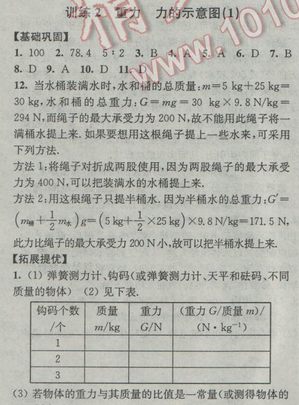 训练2 重力 力的示意图(1)
【基础巩固】
1. 100 2. 78.4 5∶2 3. B 4. A 5. A 6. D 7. B
8. D 9. A 10. D 11. D
12. 当水桶装满水时,水和桶的总质量:m=5 kg+25 kg=
30 kg,水和桶的总重力:G=mg=30 kg×9.8 N/kg=
294 N,而绳子的最大承受力为 200 N,故不能用此绳将一
满桶水提上来.如果要想用这根绳子提上一些水来,可采用
下列方法.
方法1:将绳子对折成两股使用,因为两股绳子的最大承受
力为 400 N,可以把装满水的水桶提上来.
方法2:用这根绳子只提半桶水.因为半桶水的总重力:G′=
(m桶+1/2m水)g=(5 kg+1/2×25 kg)×9.8 N/kg=171.5 N,
此力比绳子的最大承受力 200 N 小,故可以把半桶水提上来.
【拓展提优】
1. (1) 弹簧测力计、钩码(或弹簧测力计、天平和砝码、不同
质量的物体) (2) 见下表.
钩码个数/个 质量m/kg 重力G/N (重力G/质量m)/(N·kg⁻¹)
1
2
3
(3) 若物体的重力与其质量的比值是一常量(或测得物体的